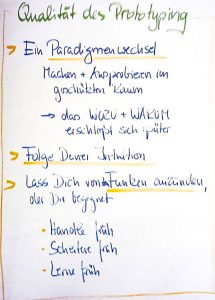 Qualität des Prototyping
Ein Paradigmenwechsel
Machen + Ausprobieren im
geschützten Raum
→ das WOZU + WARUM
erschließt sich später
Folge Deiner Intuition
Lass Dich vom Funken anzünden,
der Dir begegnet
• Handle früh
• Scheitere früh
• Lerne früh